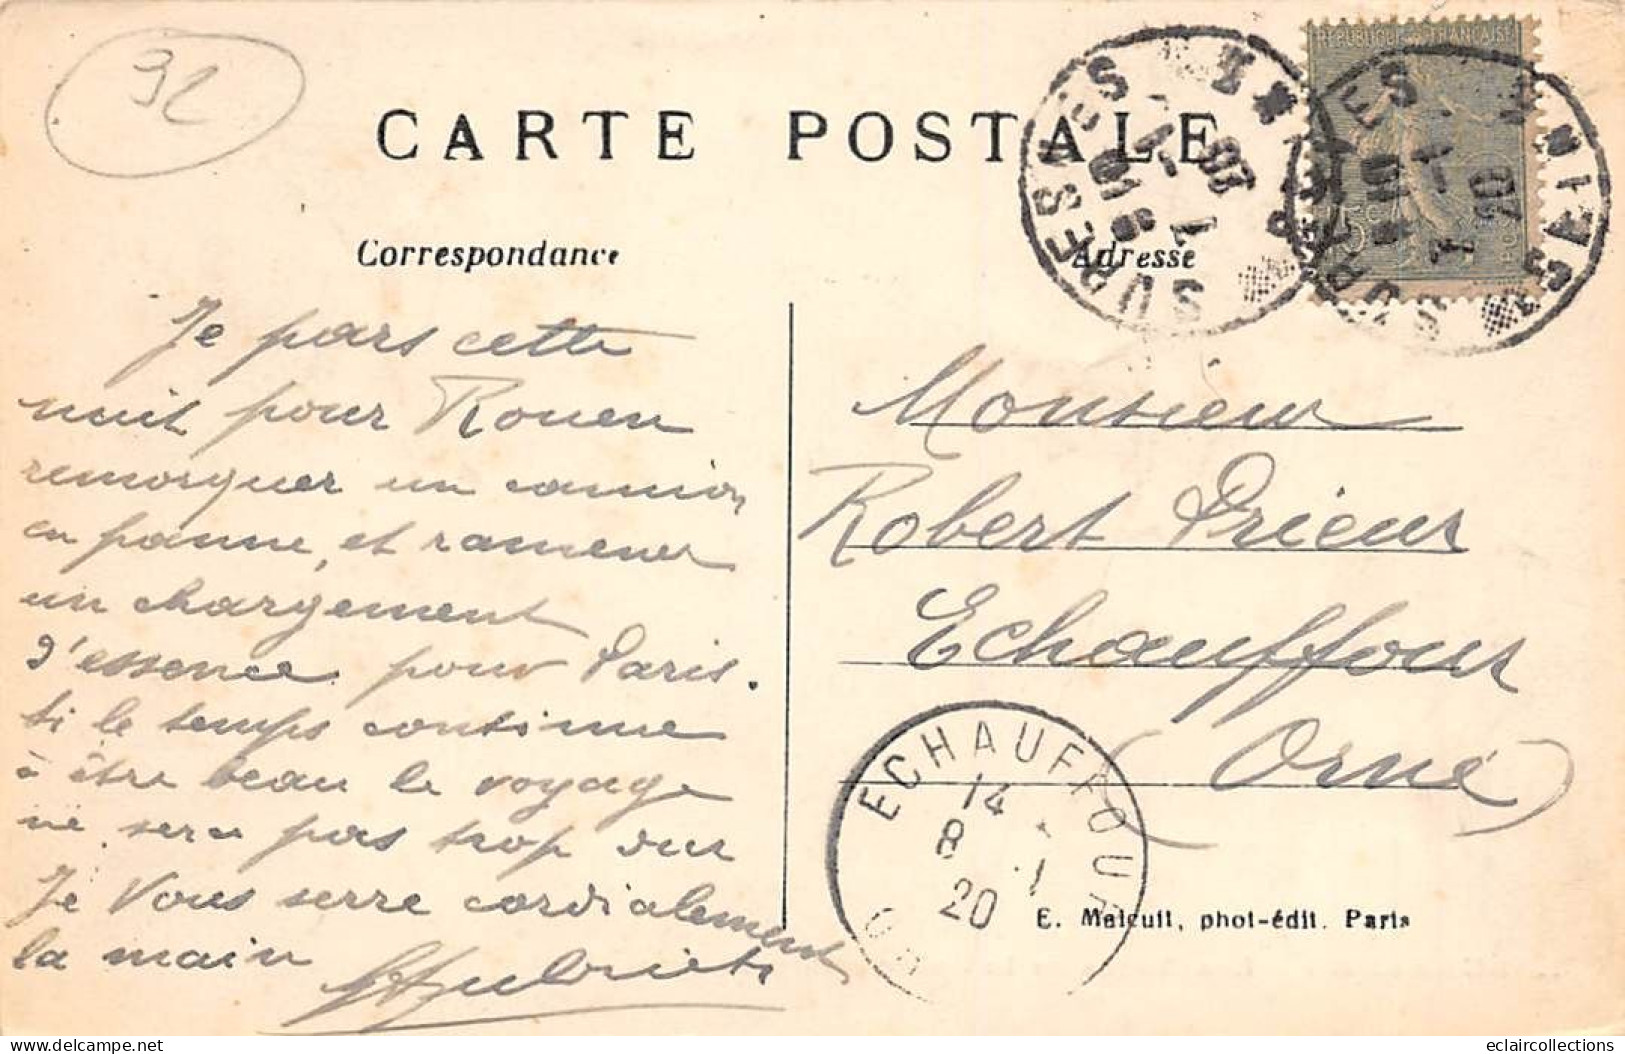 32
CARTE POSTALE
REPUBLIQUE FRANÇAISE
SURESNES
SURESNES
SEINE
Correspondance
Adresse
Je pars cette
nuit pour Rouen
remorquer un camion
en panne, et ramener
un chargement
d'essence pour Paris.
si le temps continue
à être beau le voyage
ne sera pas trop dur
Je Vous serre cordialement
la main
Monsieur
Robert Prieur
Echauffour
(Orne)
ECHAUFFOUR
14
8 1
20
E. Malcuit, phot-édit. Paris
delcampe.net
eclaircollections